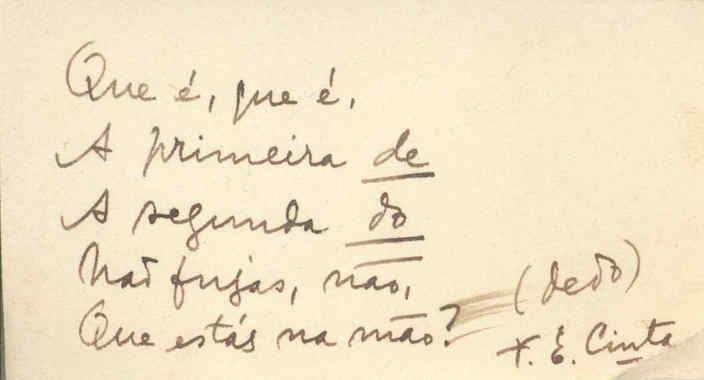 Que é, que é,
A primeira de
A segunda do
Não fujas, não,
Que estás na mão?
(dedo)
F. E. Cinta